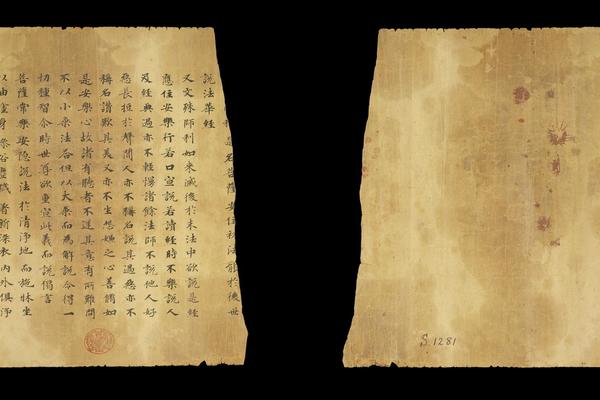 是名菩薩安住初法能於後世
說法華經
又文殊師利如來滅後於末法中欲說是經
應住安樂行若口宣說若讀經時不樂說人
及經典過亦不輕慢諸餘法師不說他人好
惡長短於聲聞人亦不稱名說其過惡亦不
稱名讚歎其美又亦不生怨嫌之心善脩如
是安樂心故諸有聽者不逆其意有所難問
不以小乘法答但以大乘而為解說令得一
切種智尒時世尊欲重宣此義而說偈言
菩薩常樂 安隱說法 於清淨地 而施牀坐
以油塗身 澡浴塵穢 著新淨衣 內外俱淨
S. 1281